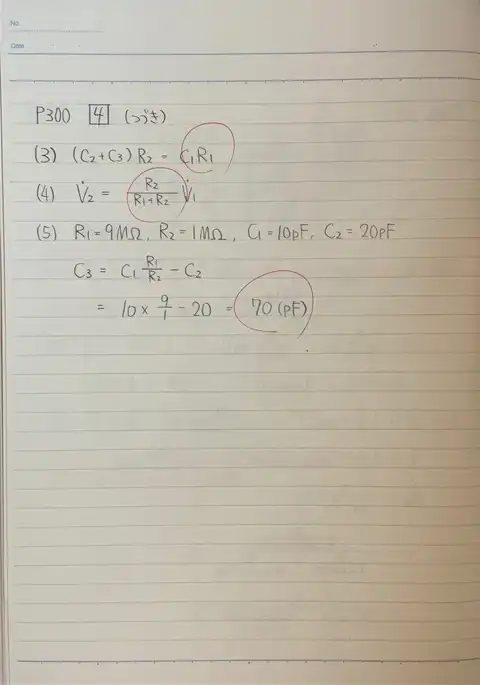 No.
Date
P300 [4] (つづき)
(3) (C₂+C₃) R₂ = C₁R₁
(4) V̇₂ = R₂/(R₁+R₂) V̇₁
(5) R₁=9MΩ, R₂=1MΩ, C₁=10pF, C₂=20pF
C₃ = C₁ R₁/R₂ - C₂
= 10 × 9/1 - 20 = 70 (pF)